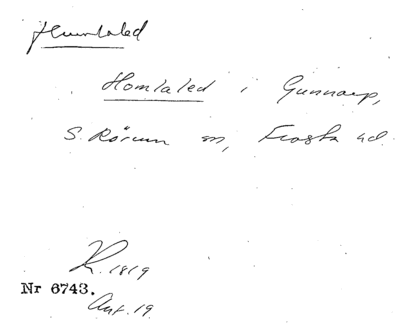 Humlaled
Homlaled i Gunnarp,
S. Rörum sn, Frosta hd.
R. 1819
Nr 6743.
Ant. 19